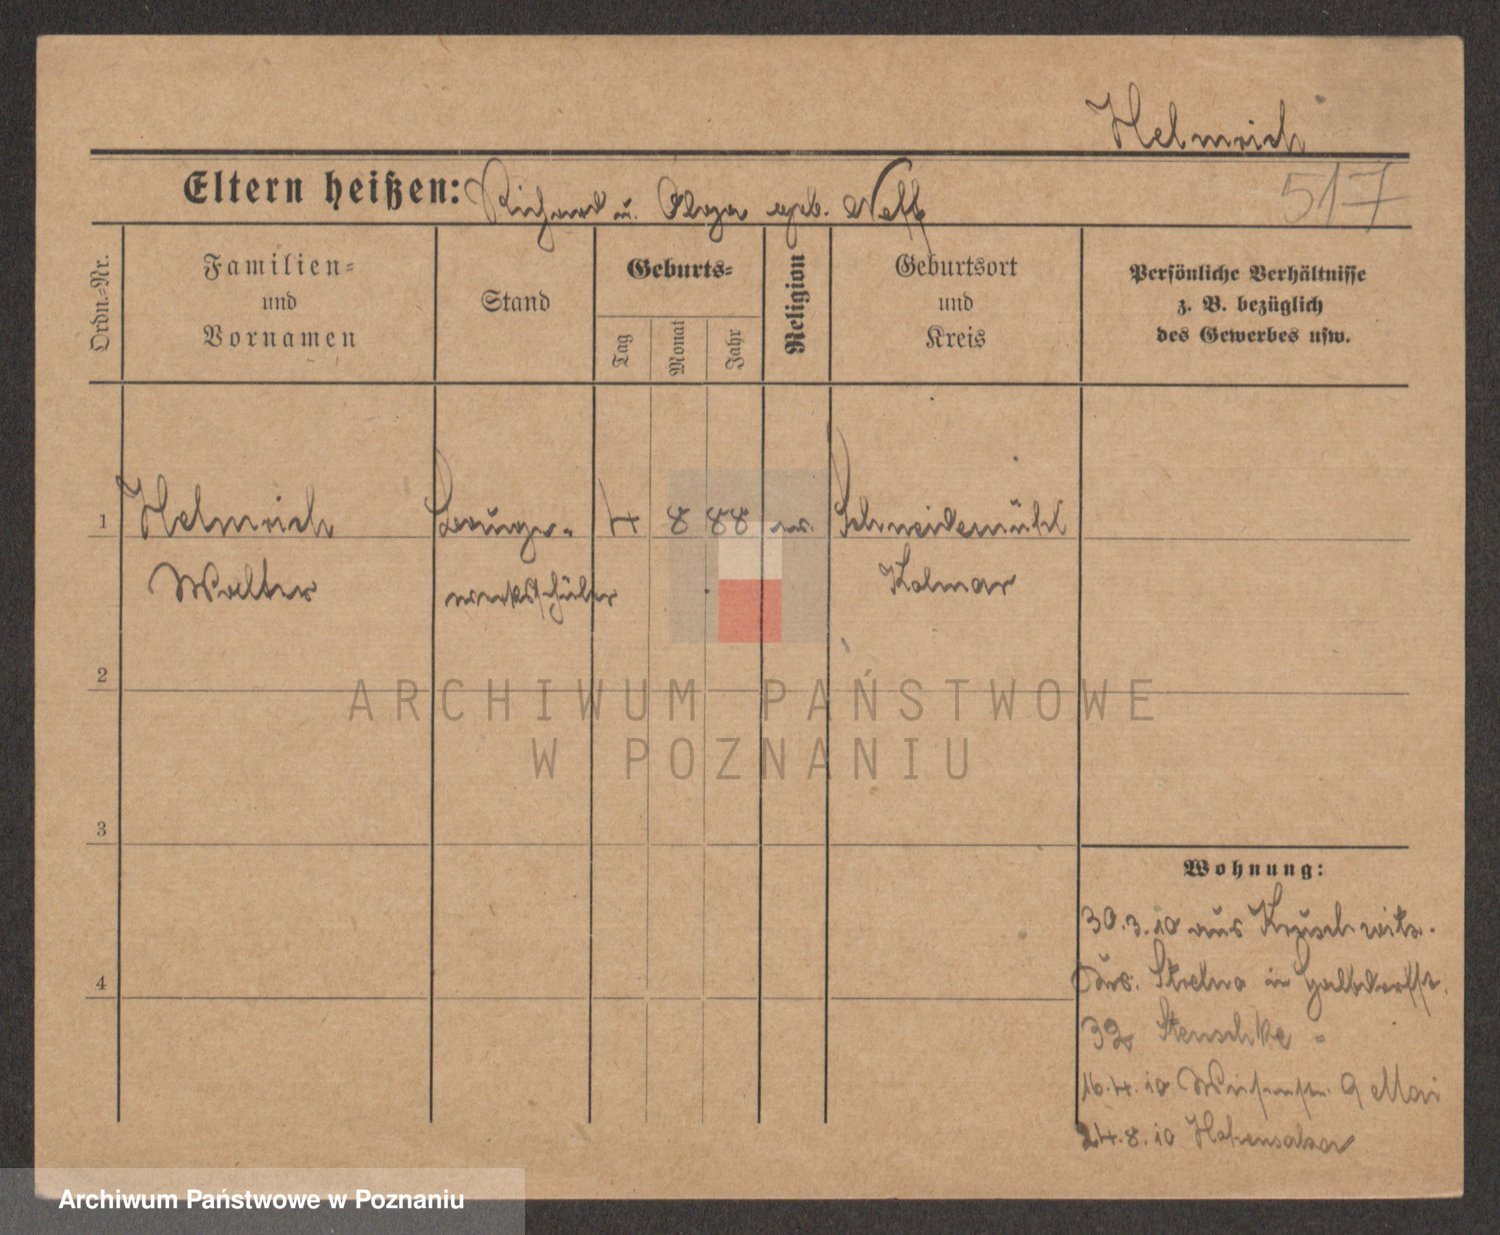 Helmrich
Eltern heißen: Richard u. Olga geb. Neff
517
Ordn.-Nr.
Familien-
und
Vornamen
Stand
Geburts-
Tag
Monat
Jahr
Religion
Geburtsort
und
Kreis
Persönliche Verhältnisse
z. B. bezüglich
des Gewerbes usw.
1 Helmrich Bauge- 4 8 88 ev. Schneidemühl
Walter werksschüler Kolmar
2
3
4
Wohnung:
30.3.10 aus Kruschwitz.
Strelno in Halbdorfstr.
32
16.4.10 9
24.8.10 Hohensalza
ARCHIWUM PAŃSTWOWE
W POZNANIU
Archiwum Państwowe w Poznaniu